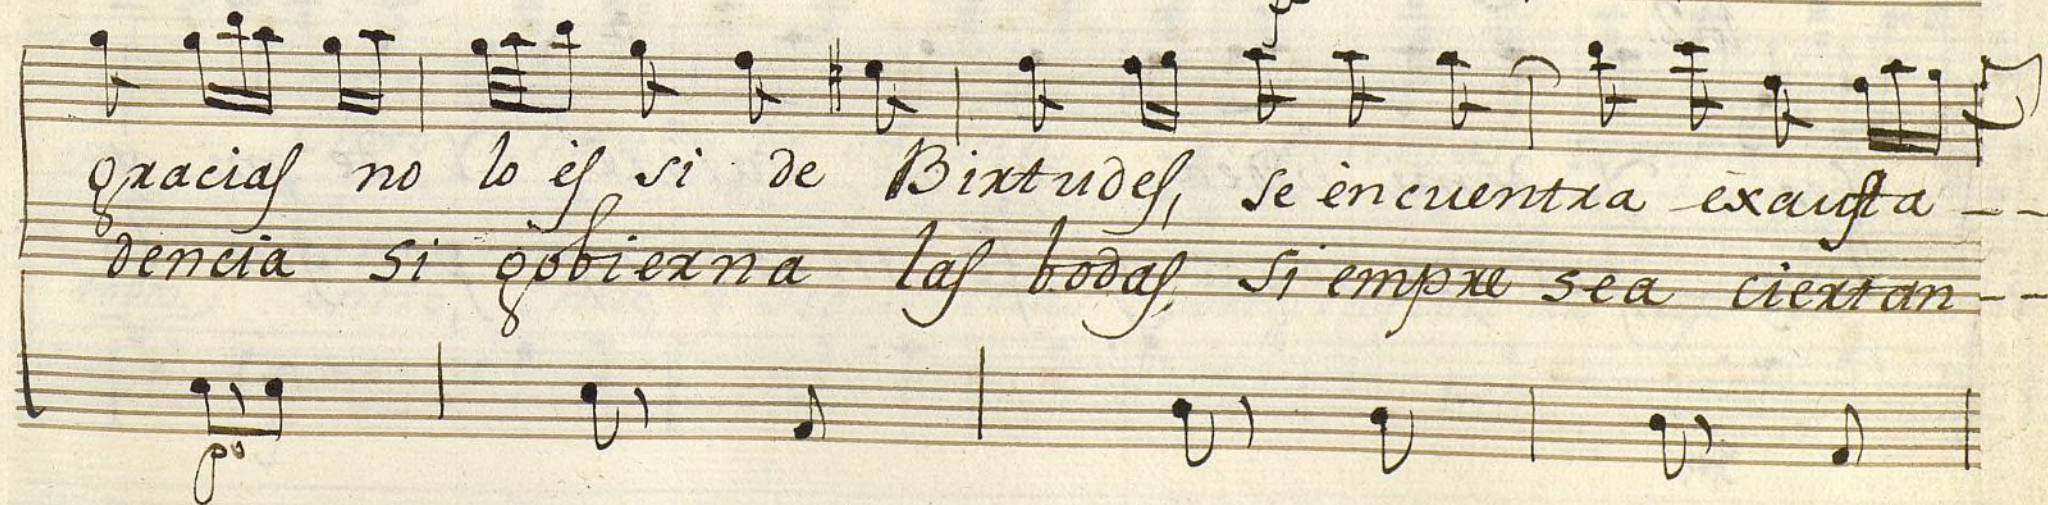 gracias no lo és si de Birtudes, se éncuentra éxausta --
dencia si gobierna las bodas, Siempre sea ciertan --
po